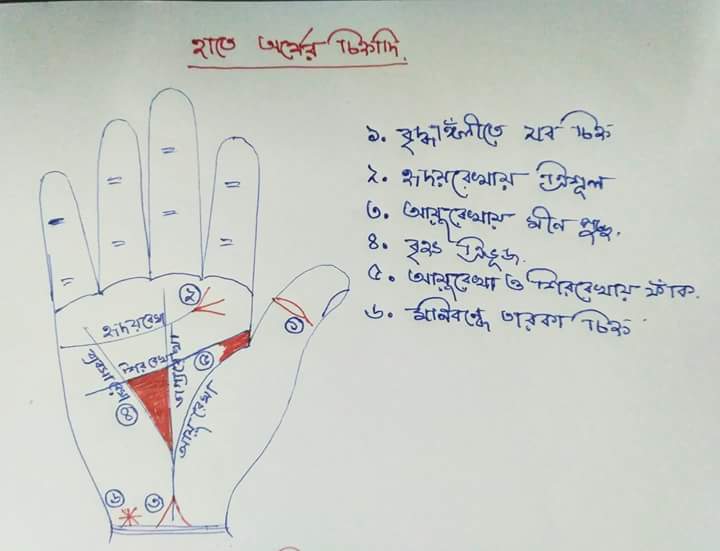 হাতে অর্থের চিহ্নাদি.
১. বৃদ্ধাঙ্গুলীতে যব চিহ্ন
২. হৃদয়রেখায় ত্রিশূল
৩. আয়ুরেখায় মীন পুচ্ছ.
৪. বৃহৎ ত্রিভূজ.
৫. আয়ুরেখা ও শিররেখায় ফাঁক.
৬. মনিবন্ধে তারকা চিহ্ন
২
হৃদয়রেখা
১
ব্যবসা রেখা
শির রেখা
ভাগ্যরেখা
৫
আয়ু রেখা
৪
৬
৩